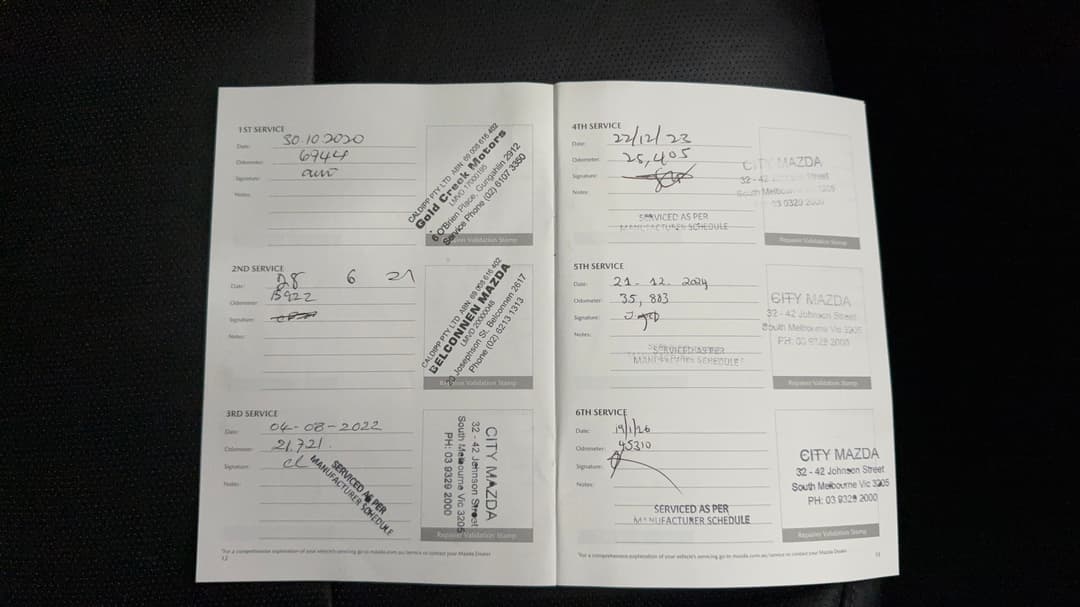 1ST SERVICE
Date: 30.10.2020
Odometer: 6944
Signature:
Notes:
CALDIPP PTY LTD ABN: 69 008 616 402
Gold Creek Motors
LMVD 17000195
6 O'Brien Place, Gungahlin 2912
Service Phone (02) 6107 3350
Repairer Validation Stamp
2ND SERVICE
Date: 28 6 21
Odometer: 15922
Signature:
Notes:
CALDIPP PTY LTD ABN: 69 008 616 402
BELCONNEN MAZDA
LMVD 20000048
Josephson St. Belconnen 2617
Phone (02) 6213 1313
Repairer Validation Stamp
3RD SERVICE
Date: 04-08-2022
Odometer: 21,721.
Signature: cl
Notes:
SERVICED AS PER
MANUFACTURER SCHEDULE
CITY MAZDA
32 - 42 Johnson Street
South Melbourne Vic 3205
PH: 03 9329 2000
Repairer Validation Stamp
*For a comprehensive explanation of your vehicle's servicing go to mazda.com.au/service or contact your Mazda Dealer
12
4TH SERVICE
Date: 22/12/23
Odometer: 25,405
Signature:
Notes:
SERVICED AS PER
MANUFACTURER SCHEDULE
CITY MAZDA
32 - 42 Street
South Melbourne 3205
03 9329 2000
Repairer Validation Stamp
5TH SERVICE
Date: 21. 12. 2024
Odometer: 35, 883
Signature:
Notes:
SERVICED AS PER
MANUFACTURER SCHEDULE
CITY MAZDA
32 - 42 Johnson Street
South Melbourne Vic 3205
PH: 03 9329 2000
Repairer Validation Stamp
6TH SERVICE
Date: 19/1/26
Odometer: 45310
Signature:
Notes:
SERVICED AS PER
MANUFACTURER SCHEDULE
CITY MAZDA
32 - 42 Johnson Street
South Melbourne Vic 3205
PH: 03 9329 2000
Repairer Validation Stamp
*For a comprehensive explanation of your vehicle's servicing go to mazda.com.au/service or contact your Mazda Dealer
13